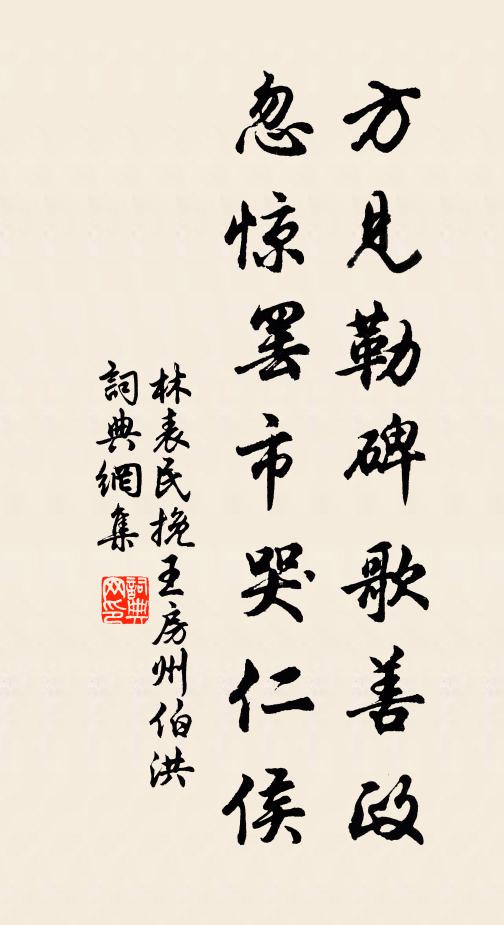 方見勒碑歌善政
忽惊罢市哭仁侯
林表民挽王房州伯洪
詞典網集
詞典網印